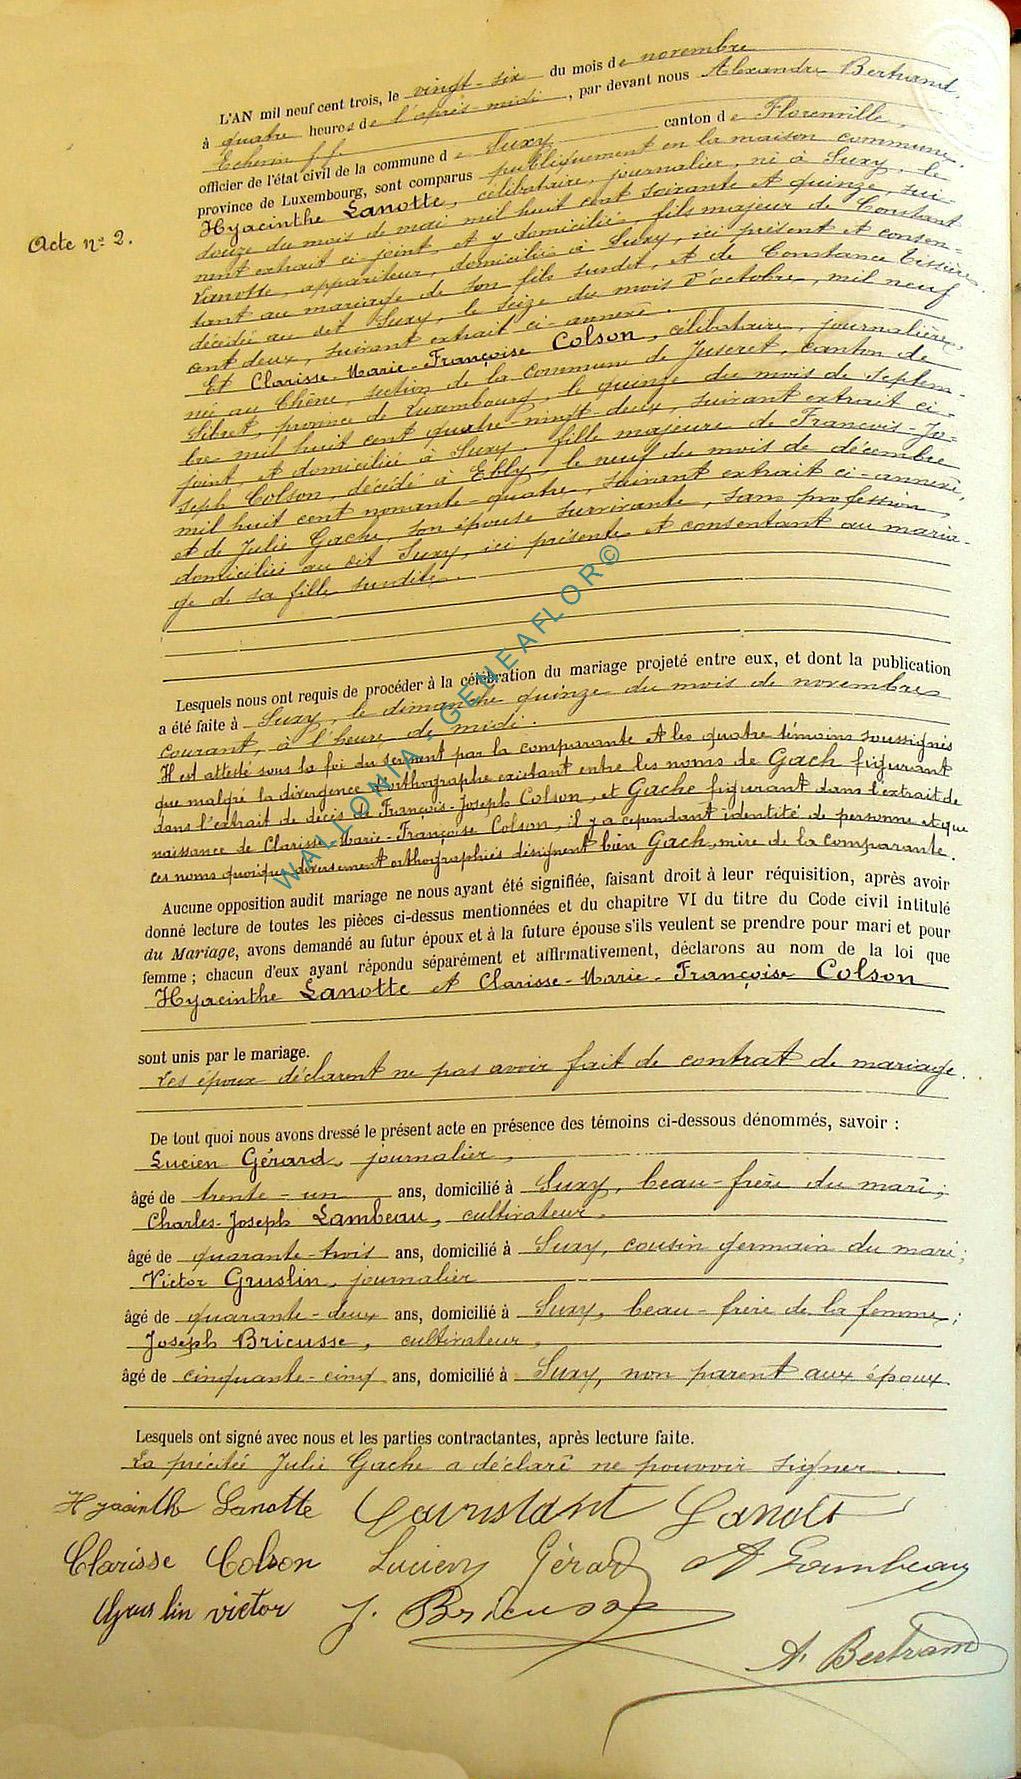 L'AN mil neuf cent trois, le vingt-six du mois de novembre
à quatre heures de l'après-midi, par devant nous Alexandre Bertrand,
Echevin ff.
officier de l'état civil de la commune de Suxy canton de Florenville,
province de Luxembourg, sont comparus publiquement en la maison commune,
Hyacinthe Lanotte, célibataire, journalier, né à Suxy, le
douze du mois de mai mil huit cent soixante et quinze, sui-
vant extrait ci-joint, et y domicilié, fils majeur de Constant
Acte nº 2.
Lanotte, appariteur, domicilié à Suxy, ici présent et consen-
tant au mariage de son fils susdit, et de Constance Tissière
décédée au dit Suxy, le seize du mois d'octobre, mil neuf
cent deux, suivant extrait ci-annexé.
Et Clarisse-Marie-Françoise Colson, célibataire, journalière,
née au Chêne, section de la commune de Juseret, canton de
Sibret, province de Luxembourg, le quinze du mois de septem-
bre mil huit cent quatre-vingt-deux, suivant extrait ci-
joint, et domiciliée à Suxy, fille majeure de François-Jo-
seph Colson, décédé à Ebly, le neuf du mois de décembre
mil huit cent nonante-quatre, suivant extrait ci-annexé,
et de Julie Gache, son épouse survivante, sans profession,
domiciliée au dit Suxy, ici présente et consentant au maria-
ge de sa fille susdite.
Lesquels nous ont requis de procéder à la célébration du mariage projeté entre eux, et dont la publication
a été faite à Suxy, le dimanche quinze du mois de novembre
courant, à l'heure de midi.
Il est attesté sous la foi du serment par la comparante et les quatre témoins soussignés
que malgré la divergence d'orthographe existant entre les noms de Gach figurant
dans l'extrait de décès de François-Joseph Colson, et Gache figurant dans l'extrait de
naissance de Clarisse-Marie-Françoise Colson, il y a cependant identité de personne et que
ces noms quoique diversement orthographiés désignent bien Gach, mère de la comparante.
Aucune opposition audit mariage ne nous ayant été signifiée, faisant droit à leur réquisition, après avoir
donné lecture de toutes les pièces ci-dessus mentionnées et du chapitre VI du titre du Code civil intitulé
du Mariage, avons demandé au futur époux et à la future épouse s'ils veulent se prendre pour mari et pour
femme ; chacun d'eux ayant répondu séparément et affirmativement, déclarons au nom de la loi que
Hyacinthe Lanotte et Clarisse-Marie-Françoise Colson
sont unis par le mariage.
Les époux déclarent ne pas avoir fait de contrat de mariage.
De tout quoi nous avons dressé le présent acte en présence des témoins ci-dessous dénommés, savoir :
Lucien Gérard, journalier,
âgé de trente-un ans, domicilié à Suxy, beau-frère du mari ;
Charles-Joseph Lambeau, cultivateur,
âgé de quarante-trois ans, domicilié à Suxy, cousin germain du mari ;
Victor Gruslin, journalier
âgé de quarante-deux ans, domicilié à Suxy, beau-frère de la femme ;
Joseph Bricusse, cultivateur,
âgé de cinquante-cinq ans, domicilié à Suxy, non parent aux époux
Lesquels ont signé avec nous et les parties contractantes, après lecture faite.
La précitée Julie Gache a déclaré ne pouvoir signer.
Hyacinthe Lanotte Counstant Lanott
Clarisse Colson Lucien Gérard Lambeau
Gruslin victor J. Bricusse
A. Bertrand
WALLONIA - GENEAFLOR©